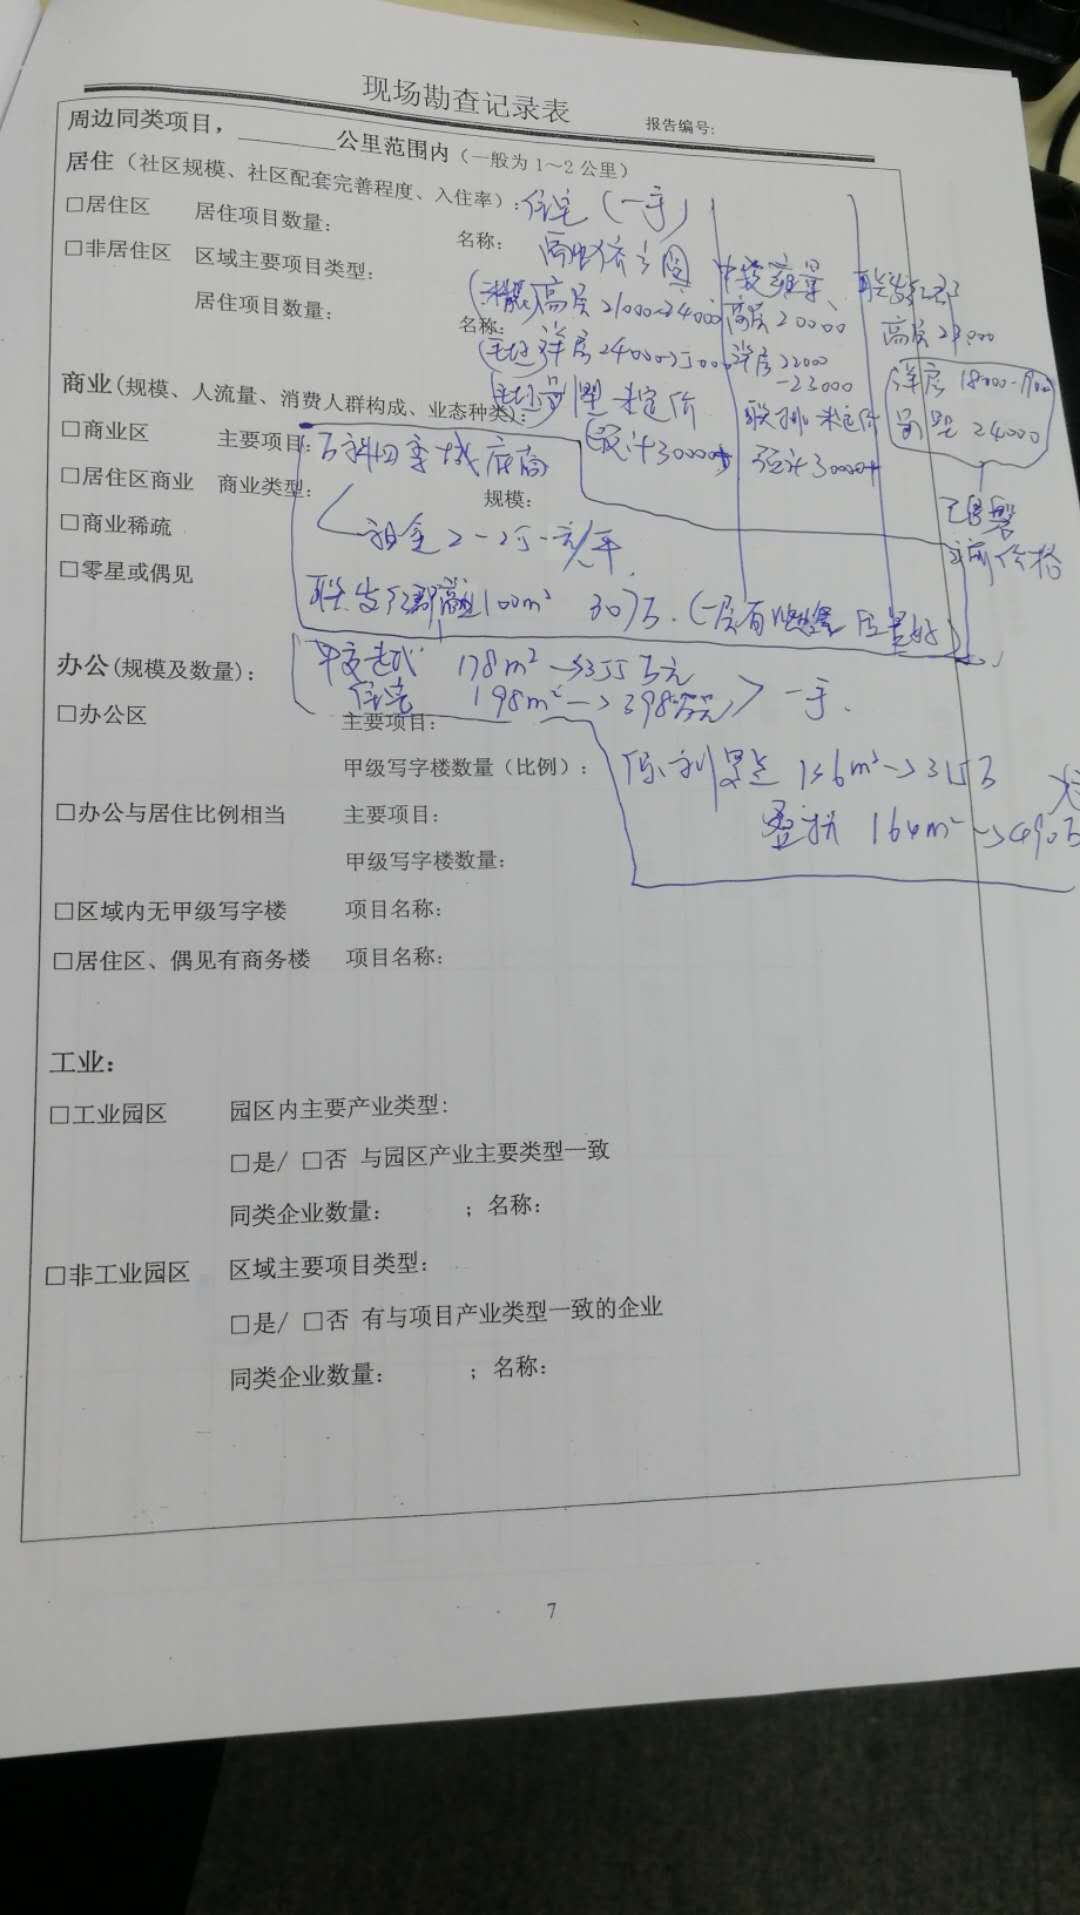 现场勘查记录表
报告编号:
周边同类项目，________公里范围内（一般为1～2公里）
居住（社区规模、社区配套完善程度、入住率）：住宅（一手）
□居住区 居住项目数量： 名称：
□非居住区 区域主要项目类型：
居住项目数量： 名称：
高层 21000-24000
洋房 24000-25000
未定价
预计30000+
高层 20000
洋房 22000
-23000
联排 未定价
预计30000+
高层 23000
洋房 18000-19000
24000
已售罄
价格
商业(规模、人流量、消费人群构成、业态种类)：
□商业区 主要项目：万科四季城底商
□居住区商业 商业类型： 规模：
□商业稀疏 租金2-2.5元/平
□零星或偶见
联发 100m² 307万（一层有 位置好）
办公(规模及数量)： 178m²→355万元
住宅 198m²→398万元 > 一手
□办公区 主要项目：
甲级写字楼数量（比例）： 保利 136m²→315万
□办公与居住比例相当 主要项目： 叠拼 164m²→490万
甲级写字楼数量：
□区域内无甲级写字楼 项目名称：
□居住区、偶见有商务楼 项目名称：
工业：
□工业园区 园区内主要产业类型：
□是/ □否 与园区产业主要类型一致
同类企业数量： ；名称：
□非工业园区 区域主要项目类型：
□是/ □否 有与项目产业类型一致的企业
同类企业数量： ；名称：
7